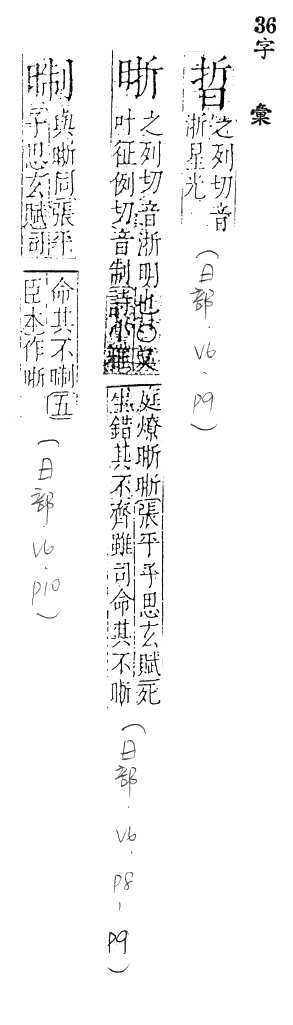 36字彙
晢
之列切音
浙星光
(日部.V6.P9)
晣
之列切音浙明也○又
叶征例切音制詩小雅
庭燎晣晣張平子思玄賦死
生錯其不齊雖司命其不晣
(日部.V6.P8-P9)
與晣同張平
子思玄賦司
命其不 五
臣本作晣
(日部.V6.P10)